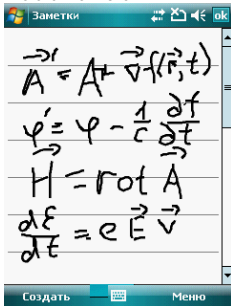 Заметки ok
A⃗' = A⃗ + ∇⃗f(r⃗, t)
φ' = φ - 1/c ∂f/∂t
H⃗ = rot A⃗
dℰ/dt = e E⃗ v⃗
Создать Меню